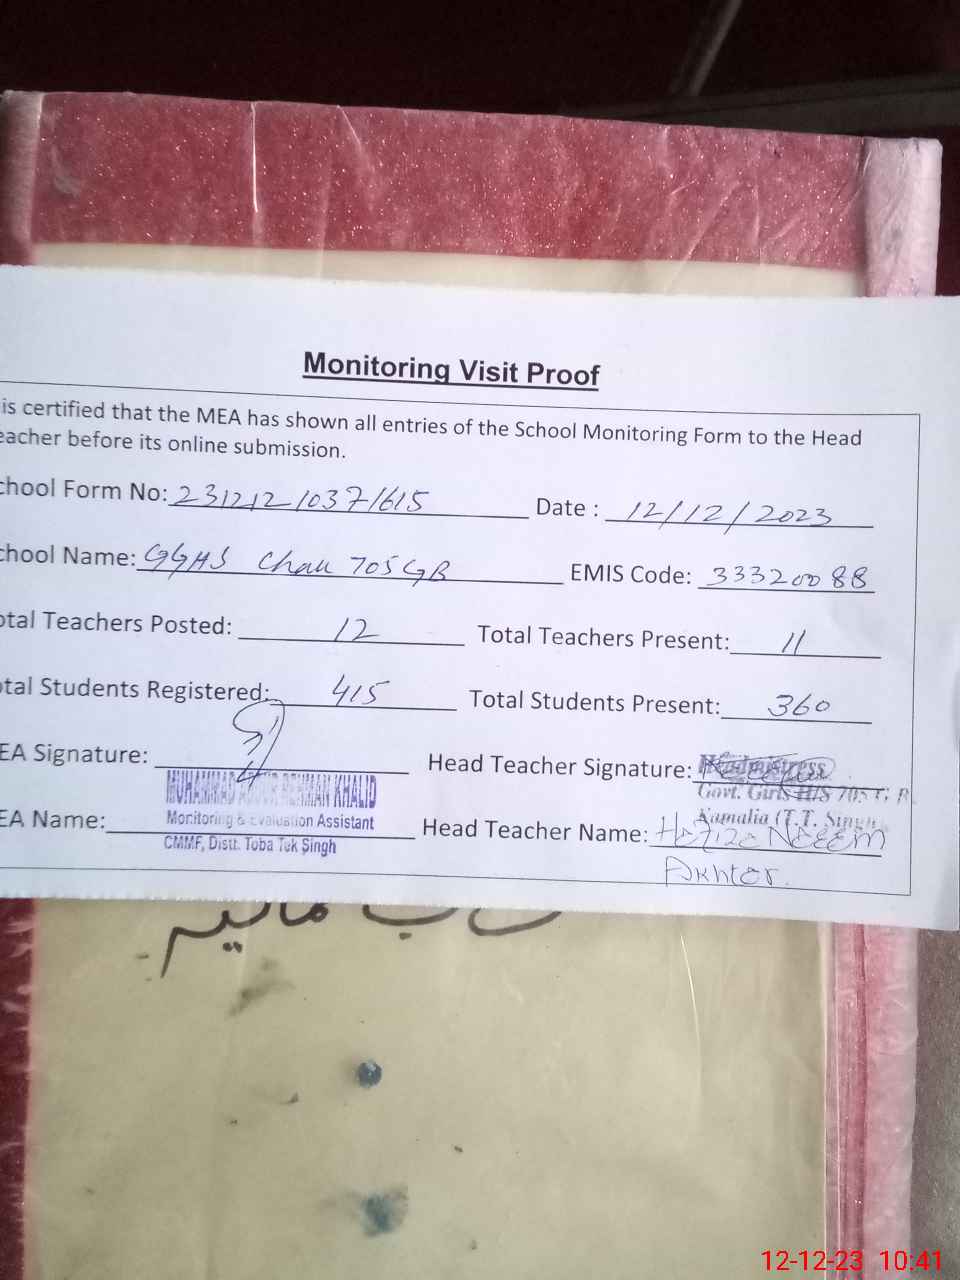 Monitoring Visit Proof
is certified that the MEA has shown all entries of the School Monitoring Form to the Head
eacher before its online submission.
chool Form No: 23121210371615 Date : 12/12/2023
chool Name: GGHS Chak 705 GB EMIS Code: 33320088
otal Teachers Posted: 12 Total Teachers Present: 11
otal Students Registered: 415 Total Students Present: 360
EA Signature: Head Teacher Signature: Headmistress
MUHAMMAD ABDUR REHMAN KHALID Govt. Girls H/S 705 G B
Monitoring & Evaluation Assistant Kamalia (T.T. Singh
EA Name: Head Teacher Name: Hafiza Naeem
CMMF, Distt. Toba Tek Singh Akhter.
12-12-23 10:41